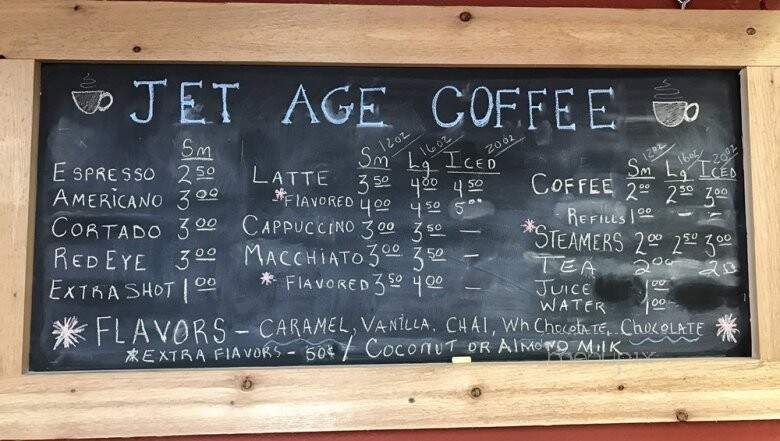 JET AGE COFFEE
Sm
ESPRESSO 2 50
AMERICANO 3 00
CORTADO 3 00
RED EYE 3 00
EXTRA SHOT 1 00
12oz 16oz 20oz
Sm Lg ICED
LATTE 3 50 4 00 4 50
*FLAVORED 4 00 4 50 5 00
CAPPUCCINO 3 00 3 50 -
MACCHIATO 3 00 3 50 -
* FLAVORED 3 50 4 00 -
12oz 16oz 20oz
Sm Lg ICED
COFFEE 2 00 2 50 3 00
- REFILLS 1 00 - -
*STEAMERS 2 00 2 50 3 00
TEA 2 00
JUICE 1 00
WATER 1 00
* FLAVORS - CARAMEL, VANILLA, CHAI, Wh Chocolate, CHOCOLATE *
*EXTRA FLAVORS - 50¢ / COCONUT OR ALMOND MILK
menupix